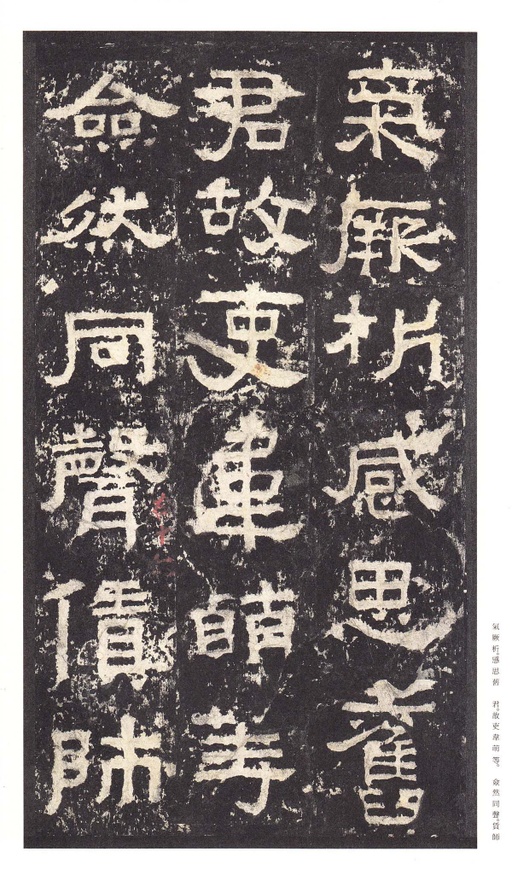 氣厥析感思舊
君故吏韋萌等
僉然同聲賃師
氣厥析。感思舊　君。故吏韋萌等。僉然同聲。賃師